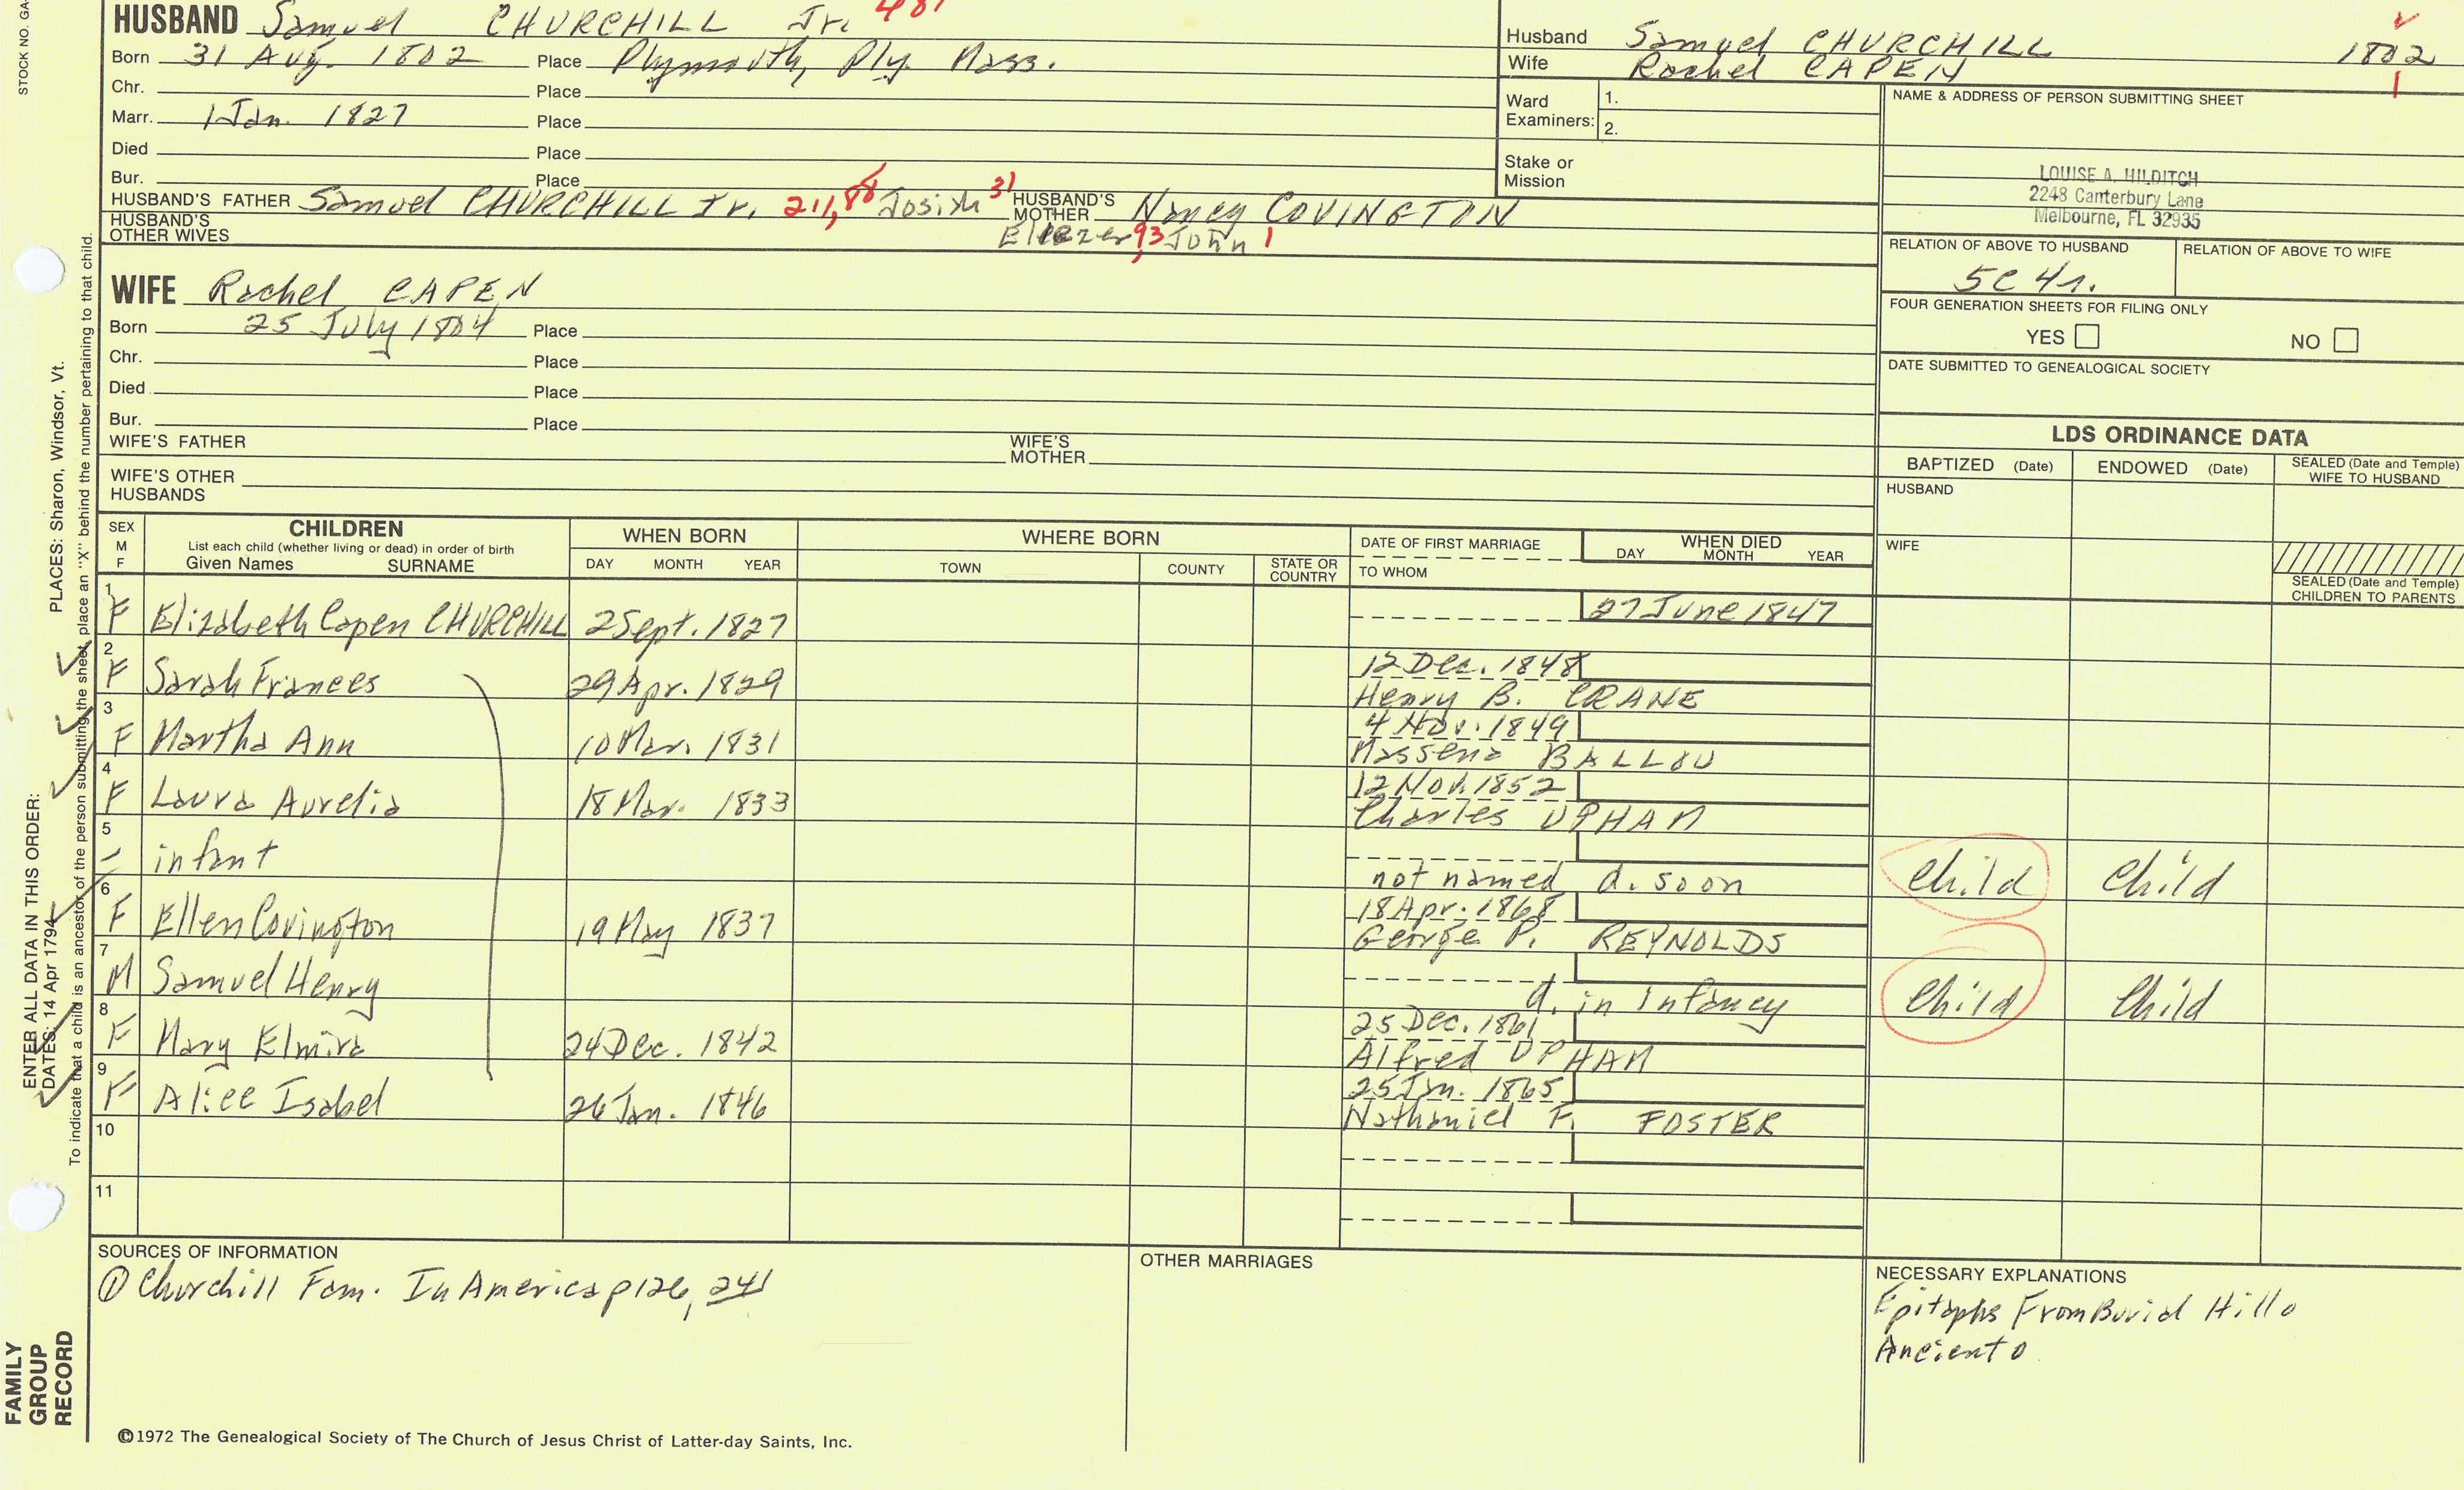 STOCK NO. GA-
HUSBAND Samuel CHURCHILL Jr. 481
Born 31 Aug. 1802 Place Plymouth, Ply. Mass.
Chr. Place
Marr. 1 Jan. 1827 Place
Died Place
Bur. Place
HUSBAND'S FATHER Samuel CHURCHILL Jr. 211, 88 Josiah 31 HUSBAND'S MOTHER Nancy COVINGTON
HUSBAND'S OTHER WIVES Eleezer 93 John 1
Husband Samuel CHURCHILL 1802
Wife Rachel CAPEN 1
Ward Examiners: 1.
2.
Stake or Mission
NAME & ADDRESS OF PERSON SUBMITTING SHEET
LOUISE A. HILDITCH
2248 Canterbury Lane
Melbourne, FL 32935
RELATION OF ABOVE TO HUSBAND RELATION OF ABOVE TO WIFE
5C 4r.
FOUR GENERATION SHEETS FOR FILING ONLY
YES NO
DATE SUBMITTED TO GENEALOGICAL SOCIETY
WIFE Rachel CAPEN
Born 25 July 1804 Place
Chr. Place
Died Place
Bur. Place
WIFE'S FATHER WIFE'S MOTHER
WIFE'S OTHER HUSBANDS
LDS ORDINANCE DATA
BAPTIZED (Date) ENDOWED (Date) SEALED (Date and Temple) WIFE TO HUSBAND
HUSBAND
WIFE
SEALED (Date and Temple) CHILDREN TO PARENTS
SEX M F CHILDREN WHEN BORN WHERE BORN DATE OF FIRST MARRIAGE WHEN DIED
List each child (whether living or dead) in order of birth
Given Names SURNAME DAY MONTH YEAR TOWN COUNTY STATE OR COUNTRY TO WHOM DAY MONTH YEAR
1 F Elizabeth Capen CHURCHILL 2 Sept. 1827 27 June 1847
2 F Sarah Frances 29 Apr. 1829 12 Dec. 1848
Henry B. CRANE
3 F Martha Ann 10 Mar. 1831 4 Nov. 1849
Massena BALLOU
4 F Laura Aurelia 18 Mar. 1833 12 Nov. 1852
Charles UPHAM
5 - infant
not named d. soon Child Child
6 F Ellen Covington 19 May 1837 18 Apr. 1868
George P. REYNOLDS
7 M Samuel Henry
d. in Infancy Child Child
8 F Mary Elmira 24 Dec. 1842 25 Dec. 1861
Alfred UPHAM
9 F Alice Isabel 26 Jan. 1846 25 Jan. 1865
Nathaniel F. FOSTER
10
11
SOURCES OF INFORMATION
① Churchill Fam. In America p 126, 241
OTHER MARRIAGES
NECESSARY EXPLANATIONS
Epitaphs From Burial Hill o
Ancient o
©1972 The Genealogical Society of The Church of Jesus Christ of Latter-day Saints, Inc.
FAMILY
GROUP
RECORD
ENTER ALL DATA IN THIS ORDER:
DATES: 14 Apr 1794 PLACES: Sharon, Windsor, Vt.
To indicate that a child is an ancestor of the person submitting the sheet, place an "X" behind the number pertaining to that child.